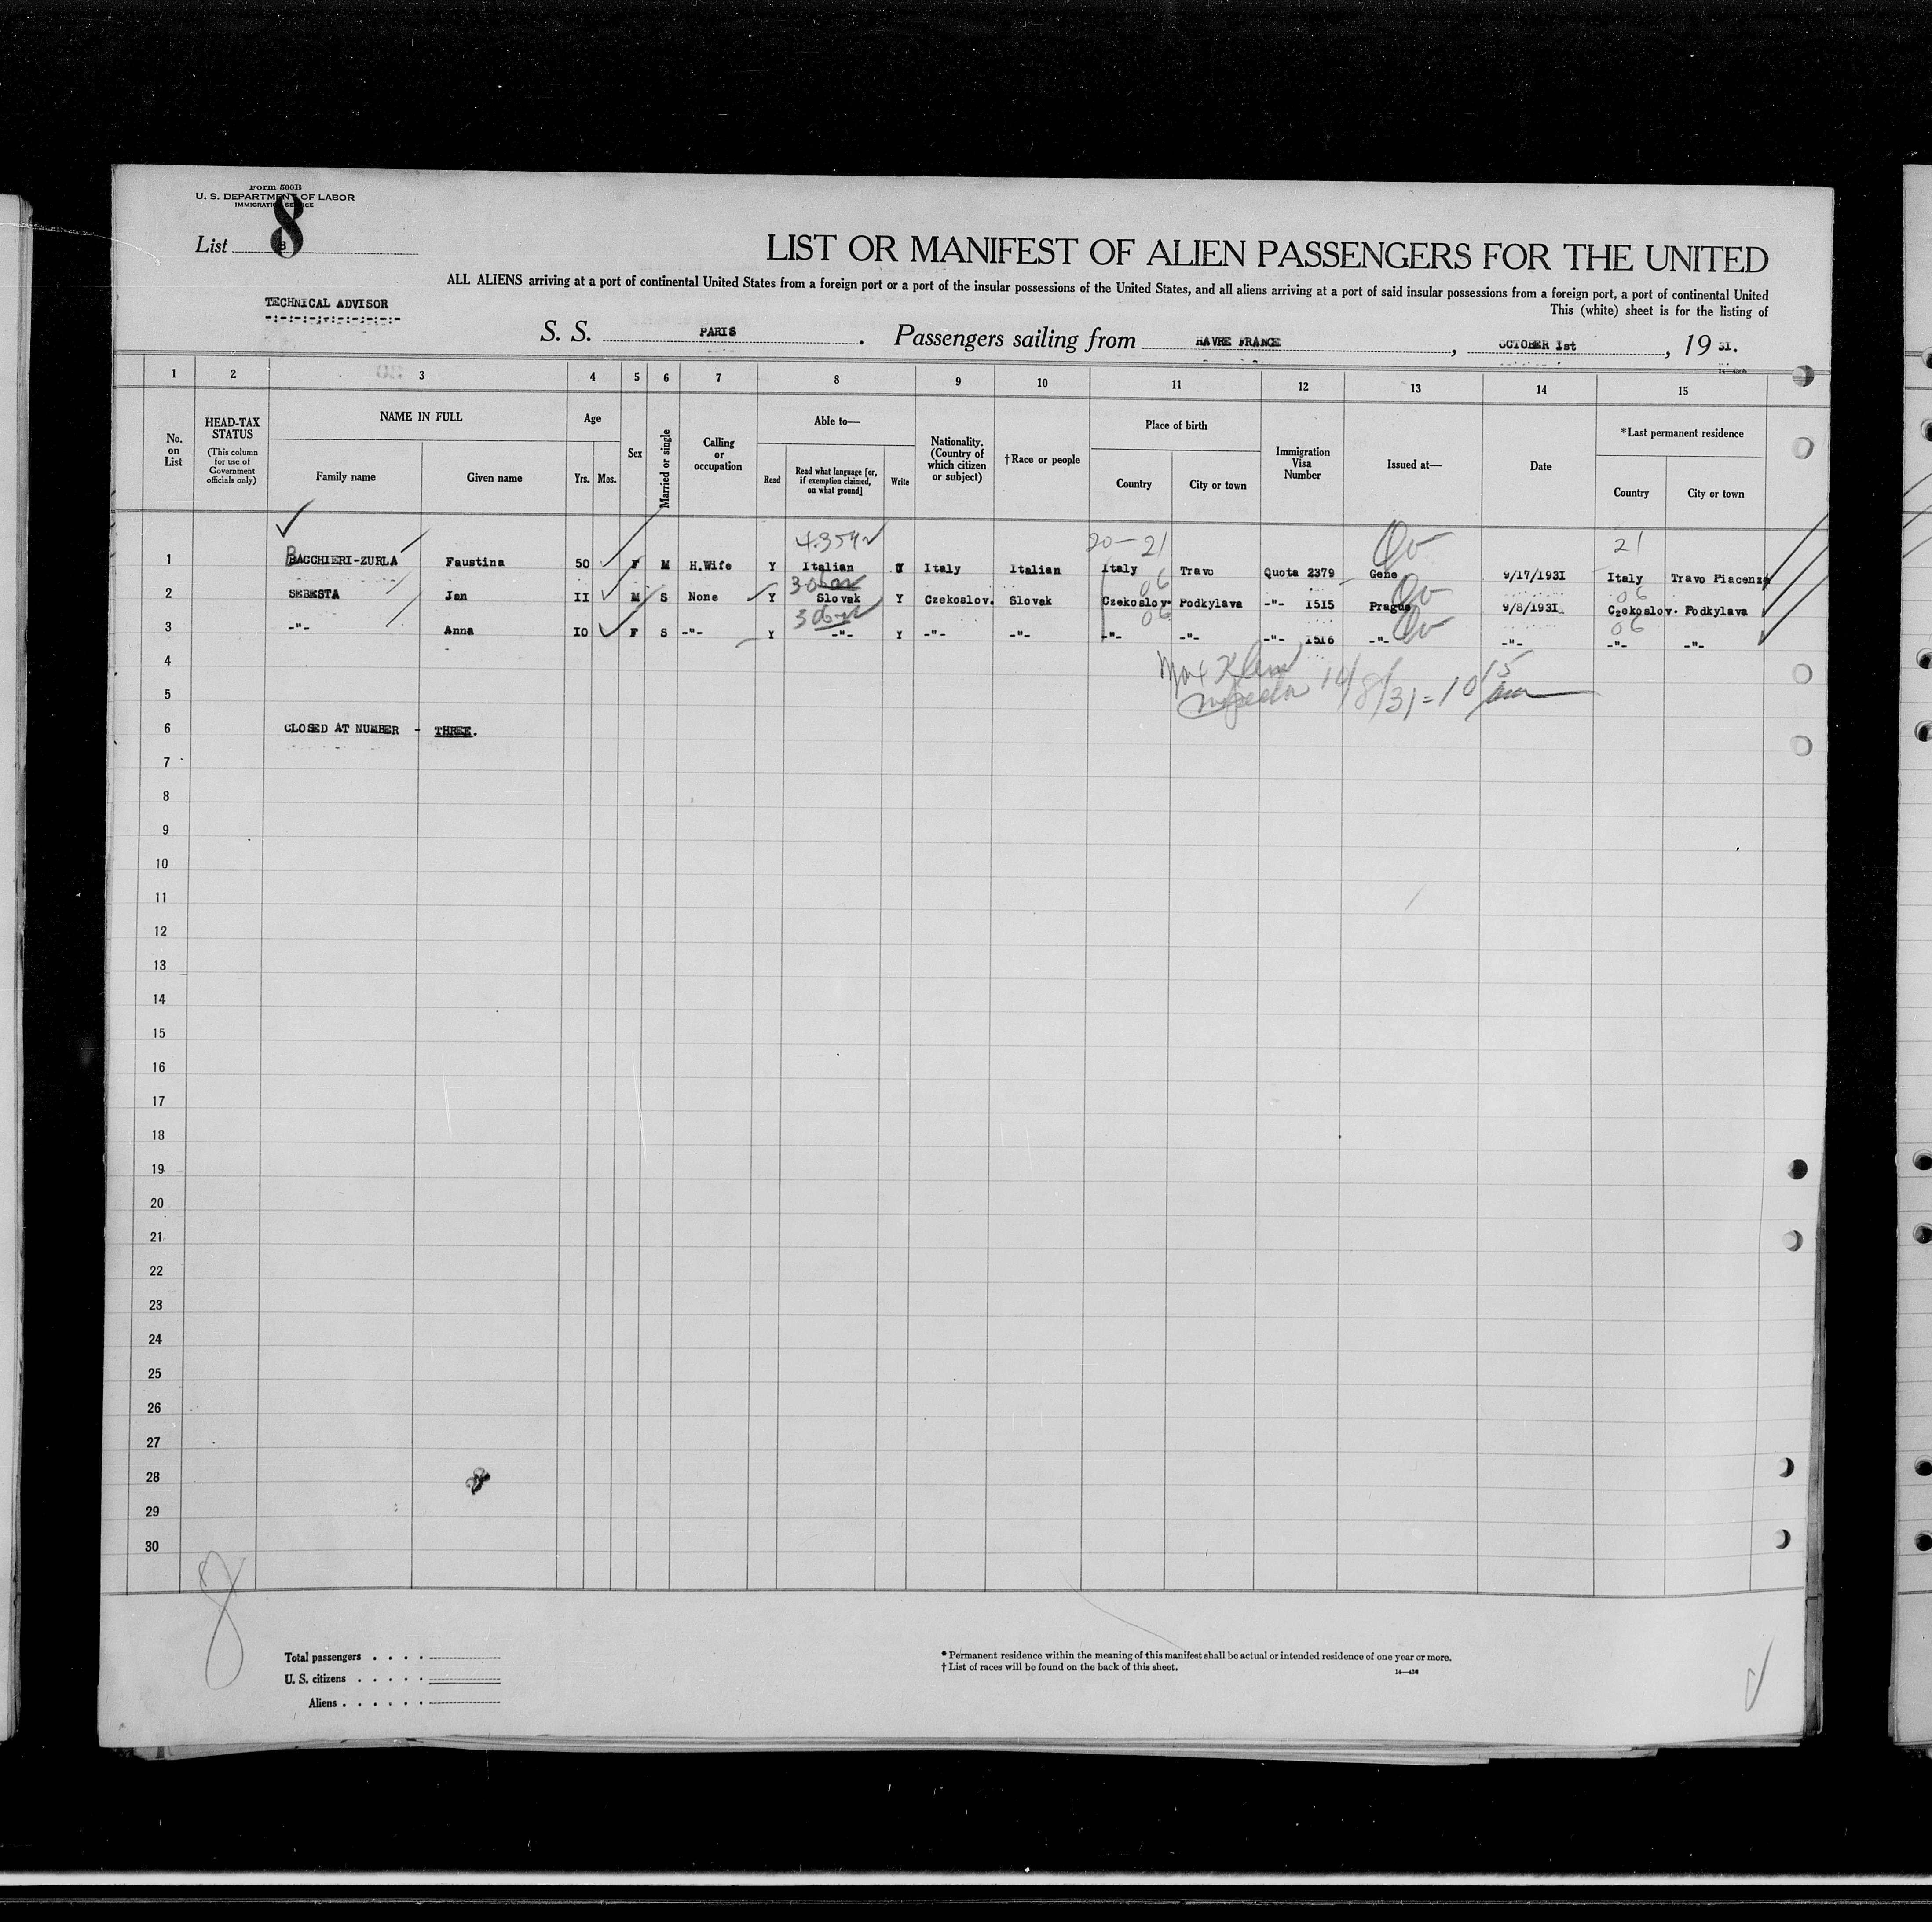 Form 500B
U. S. DEPARTMENT OF LABOR
IMMIGRATION SERVICE
8
List 8
LIST OR MANIFEST OF ALIEN PASSENGERS FOR THE UNITED
ALL ALIENS arriving at a port of continental United States from a foreign port or a port of the insular possessions of the United States, and all aliens arriving at a port of said insular possessions from a foreign port, a port of continental United
This (white) sheet is for the listing of
TECHNICAL ADVISOR
S. S. PARIS . Passengers sailing from HAVRE FRANCE , OCTOBER 1st , 19 31.
1 2 3 4 5 6 7 8 9 10 11 12 13 14 15
No. on List
HEAD-TAX STATUS (This column for use of Government officials only)
NAME IN FULL
Family name Given name
Age
Yrs. Mos.
Sex
Married or single
Calling or occupation
Able to—
Read Read what language [or, if exemption claimed, on what ground] Write
Nationality. (Country of which citizen or subject)
†Race or people
Place of birth
Country City or town
Immigration Visa Number
Issued at—
Date
*Last permanent residence
Country City or town
20-21 21
1 BACCHIERI-ZURLA Faustina 50 F M H.Wife Y Italian Y Italy Italian Italy Travo Quota 2379 Gene 9/17/1931 Italy Travo Piacenza
06 06
2 SEBESTA Jan II M S None Y Slovak Y Czekoslov. Slovak Czekoslov. Podkylava -"- 1515 Prague 9/8/1931 Czekoslov. Podkylava
06 06
3 -"- Anna IO F S -"- Y -"- Y -"- -"- -"- -"- -"- 1516 -"- -"- -"- -"-
4
5
6 CLOSED AT NUMBER - THREE.
7
8
9
10
11
12
13
14
15
16
17
18
19
20
21
22
23
24
25
26
27
28
29
30
8
Total passengers . . . .
U. S. citizens . . . . .
Aliens . . . . . .
* Permanent residence within the meaning of this manifest shall be actual or intended residence of one year or more.
† List of races will be found on the back of this sheet.